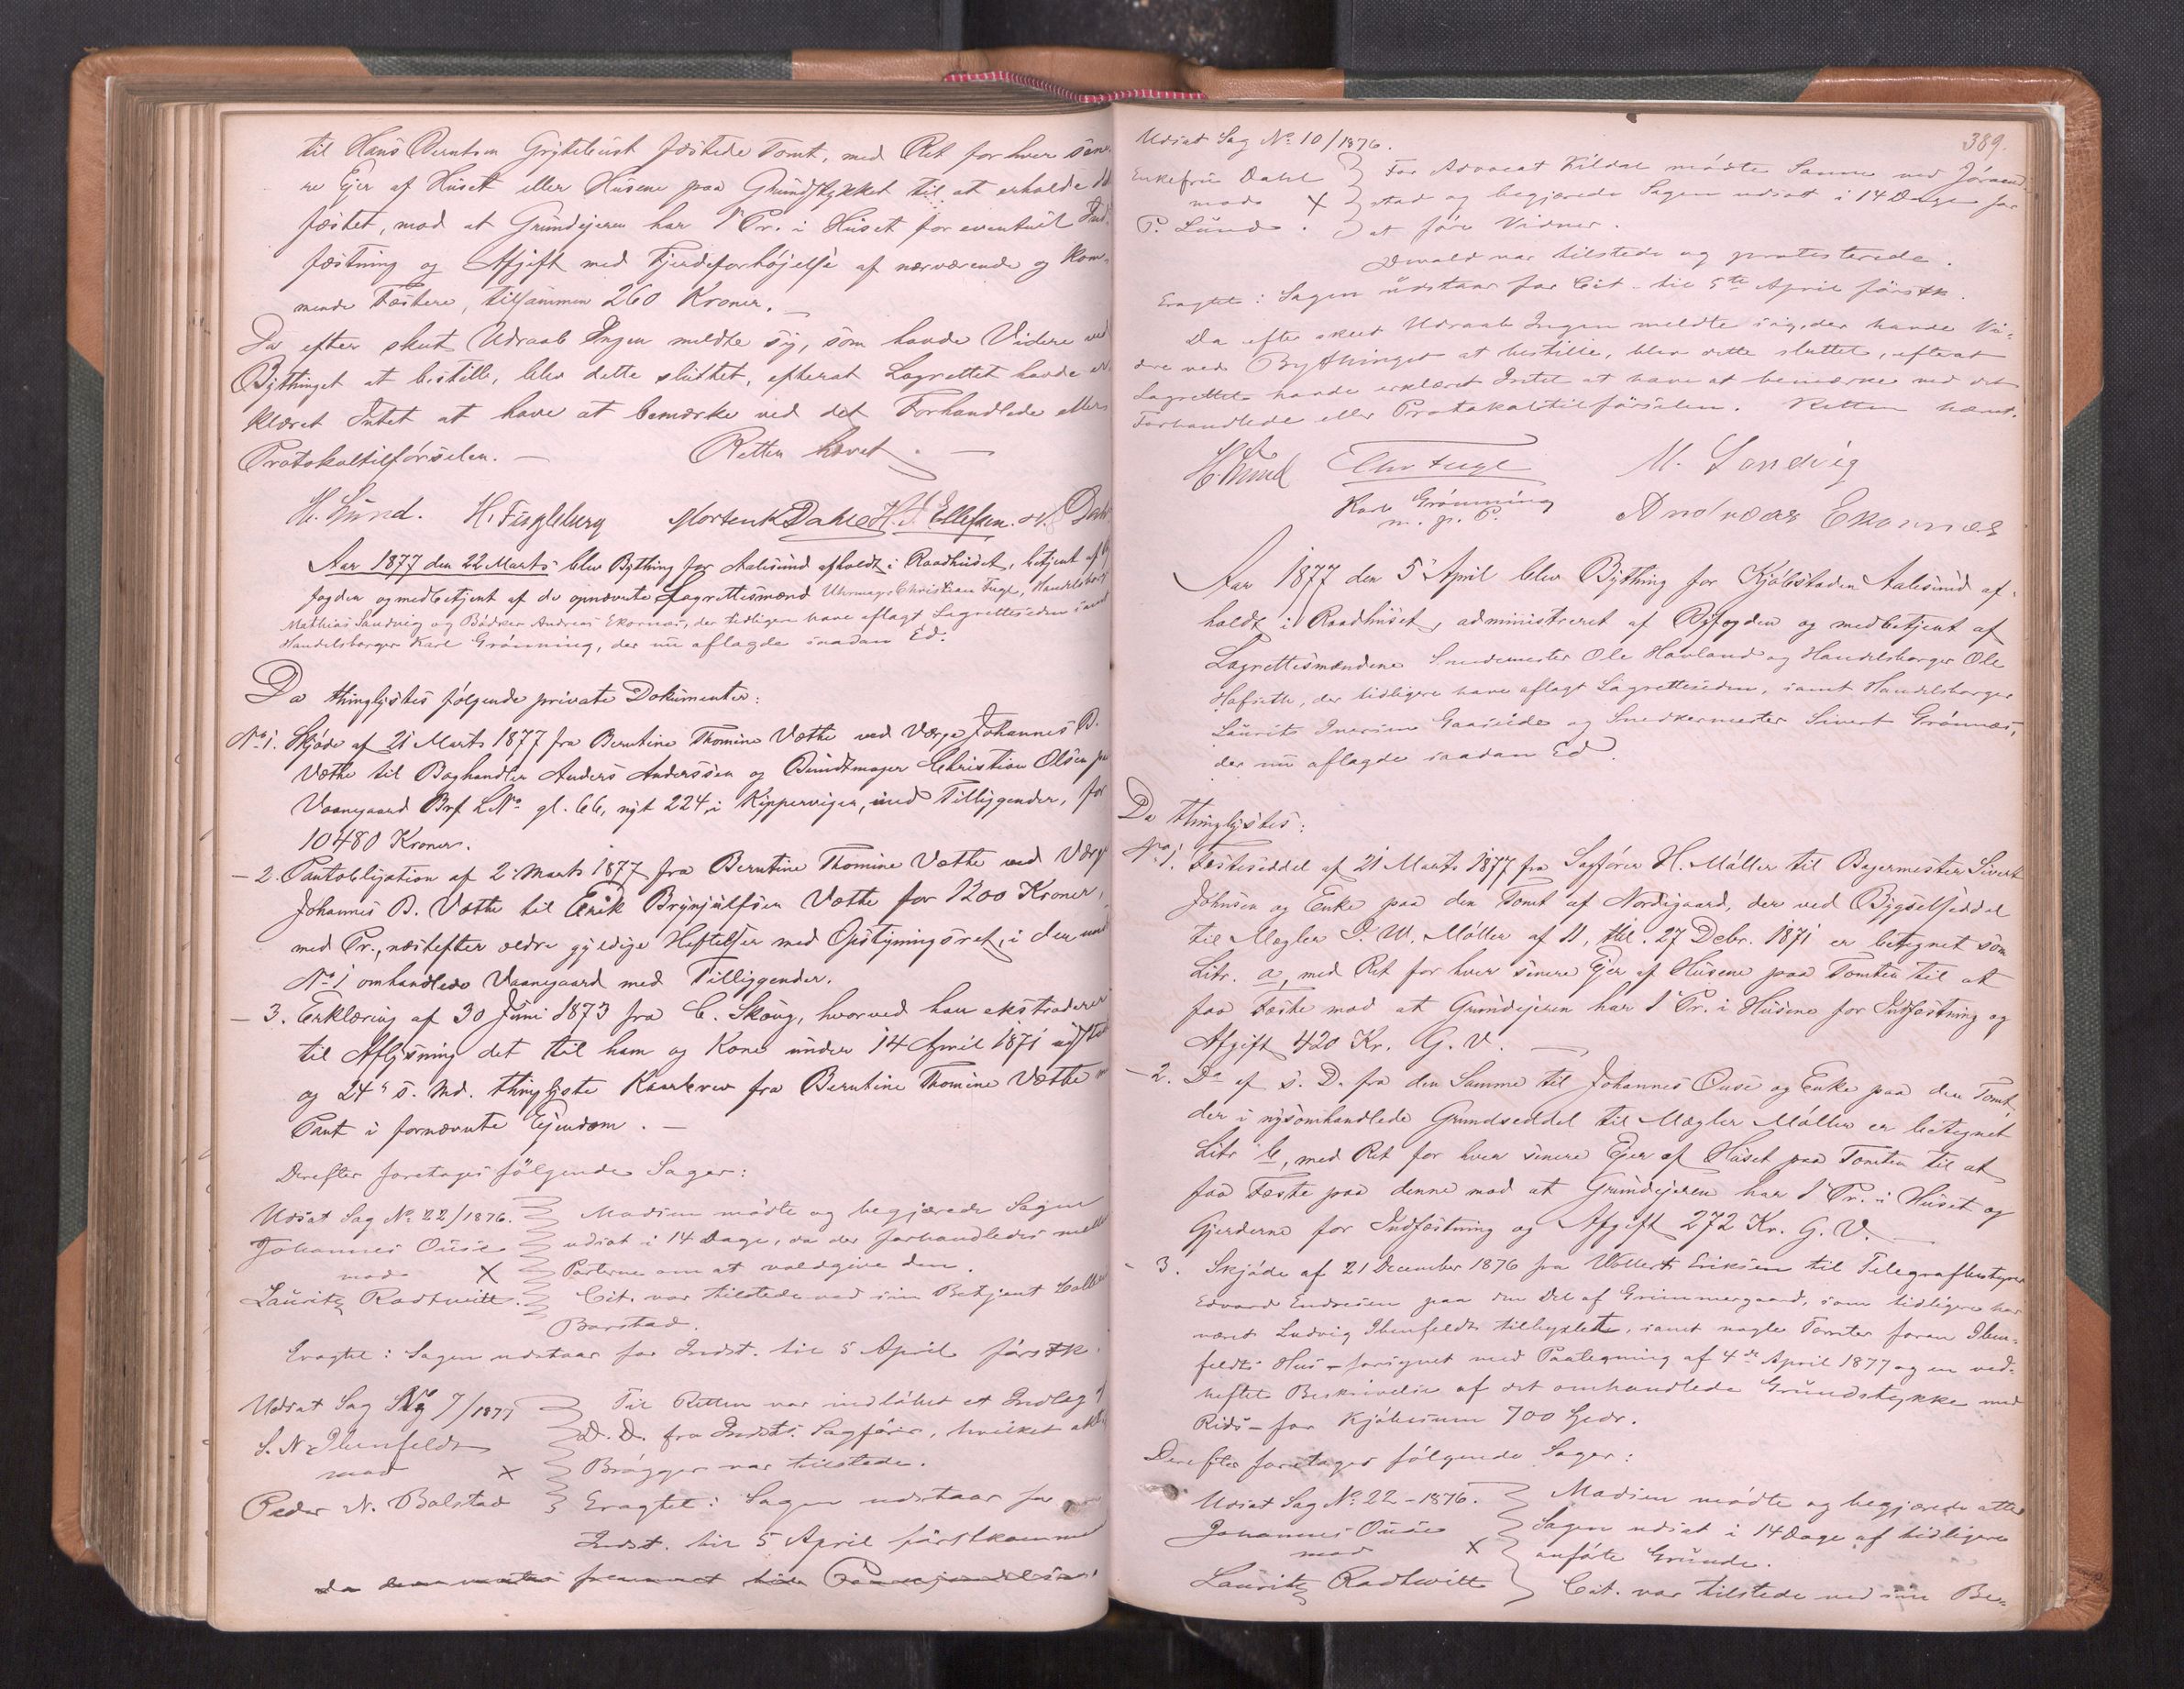 til Hans Berntsen Grytebust fæstede Tomt, med Ret for hver sene-
re Ejer af Huset eller Husene paa Grundstykket til at erholde
fæstet, mod at Grundejeren har 1 Pr. i Huset for eventuel Ind-
fæstning og Afgift med Fjerdeforhøjelse af nærværende og kom-
mende Fæstere, tilsammen 260 Kroner.
Da efter skeet Udraab Ingen meldte sig, som havde Videre ved
Bythinget at bestille, blev dette sluttet, efterat Lagrettet havde er-
klæret Intet at have at bemærke ved det Forhandlede eller
Protokoltilførselen. — Retten hævet. —
H. Lund. H. Fuglsberg Morten K Dahl H. J. Ellefsen. N. Dahl
Aar 1877 den 22 Marts blev Bything for Aalesund afholdt i Raadhuset, betjent af By-
fogden og medbetjent af de opnævnte Lagrettesmænd Uhrmager Christian Fuge, Handelsborger
Mathias Sandvig og Bødker Andreas Ekornæs, der tidligere have aflagt Lagretteseden samt
Handelsborger Karl Grönning, der nu aflagde saadan Ed.
Da thinglystes følgende private Dokumenter:
No 1. Skjøde af 21 Marts 1877 fra Berntine Thomine Vatthe ved Værge Johannes B.
Vatthe til Boghandler Anders Anderssen og Bundtmager Christian Olsen paa
Vaanegaard Brf. L.No gl. 66, nyt 224, i Kippervigen, med Tilliggender, for
10480 Kroner.
— 2. Pantobligation af 2 Marts 1877 fra Berntine Thomine Vatthe ved Værge
Johannes B. Vatthe til Erik Brynjulfsen Vatthe for 1200 Kroner,
med Pr., næstefter ældre gyldige Heftelser med Opstigningsret, i den und
No 1 omhandlede Vaanegaard med Tilliggender.
— 3. Erklæring af 30 Juni 1873 fra C. Skoug, hvorved han ekstraderer
til Aflysning det til ham og Kone under 14 April 1871 udstedte
og 24de s. Md. thinglyste Kaarbrev fra Berntine Thomine Vatthe m
Pant i fornævnte Ejendom. —
Derefter foretoges følgende Sager:
Udsat Sag No 22/1876. Madsen mødte og begjærede Sagen
Johannes Ouse udsat i 14 Dage, da der forhandledes mellem
mod X Parterne om at voldgive den.
Lauritz Rodtwitt. Cit. var tilstede ved sin Betjent
Barstad.
Eragtet: Sagen udstaar for Indst. til 5 April førstk.
Udsat Sag No 7/1877 Til Retten var indløbet et Indlæg af
S. N. Ibenfeldt D. D. fra Indst. Sagfører, hvilket
mod X Brøgger var tilstede.
Peder N. Bolstad Eragtet: Sagen udstaar for
Indst. til 5 April førstkommende
389.
Udsat Sag No 10/1876.
Enkefru Dahl For Advocat Kildal mødte Samme ved Jörend-
mod X stad og begjærede Sagen udsat i 14 Dage for
P. Lund. at føre Vidner.
Devold var tilstede og protesterede.
Eragtet: Sagen udstaar for Cit. til 5te April førstk.
Da efter skeet Udraab Ingen meldte sig, der havde Vi-
dere ved Bythinget at bestille, blev dette sluttet, efterat
Lagrettet havde erklæret Intet at have at bemærke ved det
Forhandlede eller Protokoltilførselen. Retten hævet.
H. Lund Chr Fuge M. Sandvig
Karl Grönning Andreas Ekornæs
m. p. P.
Aar 1877 den 5 April blev Bything for Kjøbstaden Aalesund af-
holdt i Raadhuset, administreret af Byfogden og medbetjent af
Lagrettesmændene Smedemester Ole Havland og Handelsborger Ole
Hafsæth, der tidligere have aflagt Lagretteseden, samt Handelsborger
Laurits Iversen Gaaseide og Snedkermester Sivert Grønnæs,
der nu aflagde saadan Ed.
Da thinglystes:
No 1. Fæsteseddel af 21 Marts 1877 fra Sagfører H. Møller til Bagermester Sivert
Johnsen og Enke paa den Tomt af Nordigaard, der ved Bygselseddel
til Mægler I. W. Møller af 11, thl. 27 Debr. 1871 er betegnet som
Litr. a, med Ret for hver senere Ejer af Husene paa Tomten til at
faa Fæste mod at Grundejeren har 1 Pr. i Husene for Indfæstning og
Afgift 420 Kr. G. V. —
— 2. Do af s. D. fra den Samme til Johannes Ouse og Enke paa den Tomt,
der i nysomhandlede Grundseddel til Mægler Møller er betegnet
Litr. b, med Ret for hver senere Ejer af Huset paa Tomten til at
faa Fæste paa denne mod at Grundejeren har 1 Pr. i Huset og
Gjerderne for Indfæstning og Afgift 272 Kr. G. V. —
- 3. Skjøde af 21 December 1876 fra Vollert Eriksen til Telegrafbestyrer
Edvard Endresen paa den Del af Grimmergaard, som tidligere har
været Ludvig Ibenfeldt tilbyxlet, samt nogle Tomter foran Iben-
feldts Hus - forsynet med Paategning af 4de April 1877 og en ved-
heftet Beskrivelse af det omhandlede Grundstykke med
Rids - for Kjøbesum 700 Spdr.
Derefter foretoges følgende Sager:
Udsat Sag No 22 - 1876. Madsen mødte og begjærede atter
Johannes Ouse Sagen udsat i 14 Dage af tidligere
mod X anførte Grunde.
Lauritz Rodtwitt Cit. var tilstede ved sin Be-